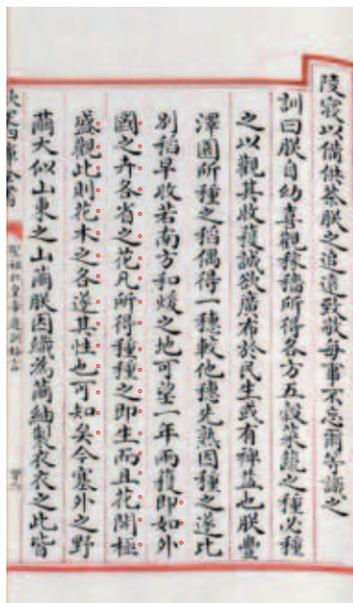 陵寢以備供茶朕之追遠致敬每事不忘爾等識之
訓曰朕自幼喜觀稼穡所得各方五穀菜蔬之種必種
之以觀其收穫誠欲廣布於民生或有裨益也朕豐
澤園所種之稻偶得一穗較他穗先熟因種之遂比
別稻早收若南方和煖之地可望一年兩穫即如外
國之卉各省之花凡所得種種之即生而且花開極
盛觀此則花木之各遂其性也可知矣今塞外之野
繭大似山東之山繭朕因織為繭紬製衣衣之此皆
欽定四庫全書
聖祖仁皇帝庭訓格言